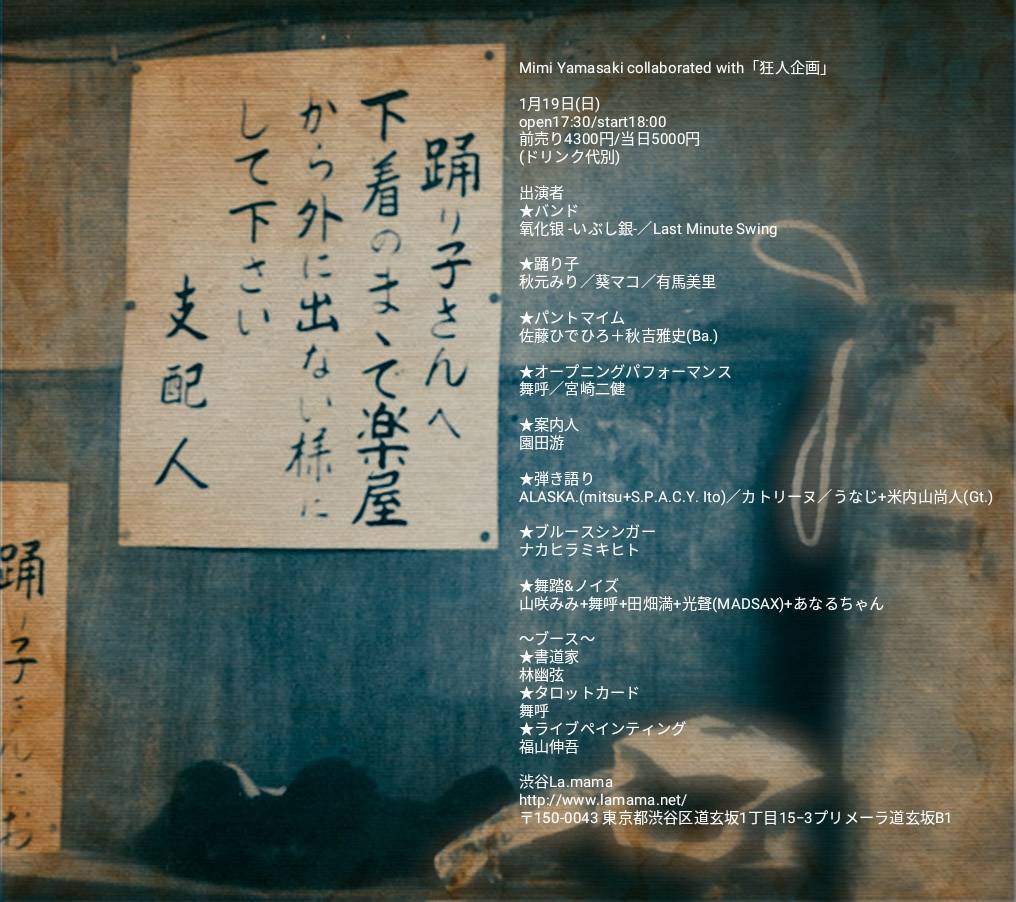 踊り子さんへ
下着のまゝで楽屋
から外に出ない様に
して下さい
支配人
踊り子さんにお
Mimi Yamasaki collaborated with「狂人企画」
1月19日(日)
open17:30/start18:00
前売り4300円/当日5000円
(ドリンク代別)
出演者
★バンド
氧化银 -いぶし銀-／Last Minute Swing
★踊り子
秋元みり／葵マコ／有馬美里
★パントマイム
佐藤ひでひろ＋秋吉雅史(Ba.)
★オープニングパフォーマンス
舞呼／宮崎二健
★案内人
園田游
★弾き語り
ALASKA.(mitsu+S.P.A.C.Y. Ito)／カトリーヌ／うなじ+米内山尚人(Gt.)
★ブルースシンガー
ナカヒラミキヒト
★舞踏&ノイズ
山咲みみ+舞呼+田畑満+光聲(MADSAX)+あなるちゃん
～ブース～
★書道家
林幽弦
★タロットカード
舞呼
★ライブペインティング
福山伸吾
渋谷La.mama
http://www.lamama.net/
〒150-0043 東京都渋谷区道玄坂1丁目15−3プリメーラ道玄坂B1